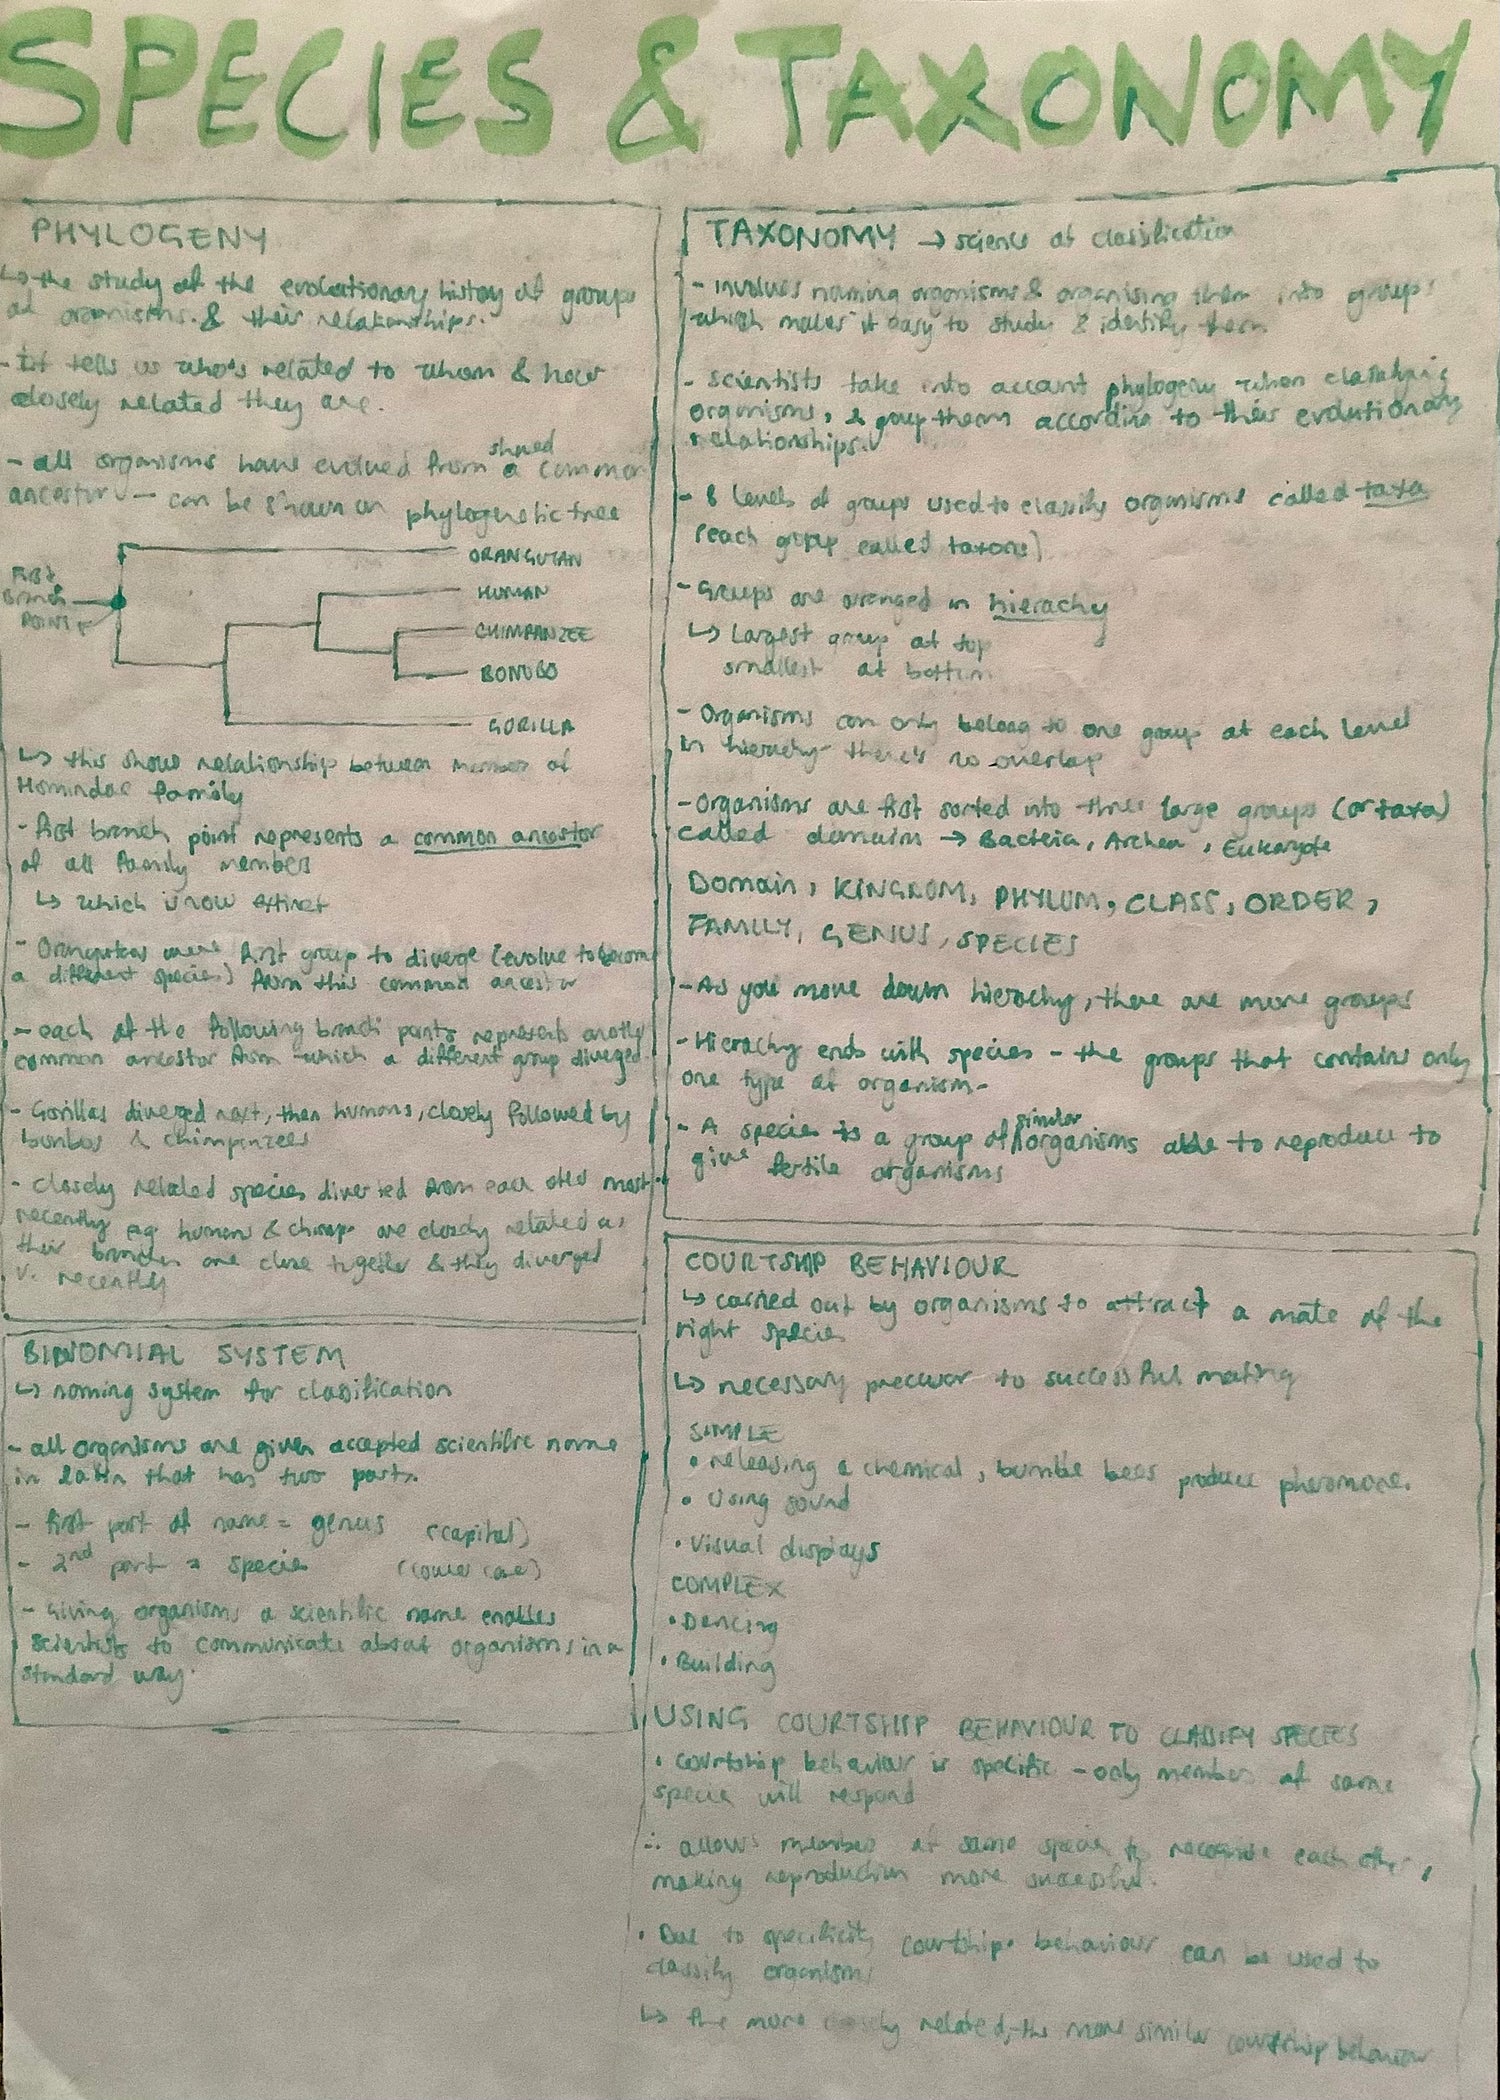 SPECIES & TAXONOMY
PHYLOGENY
↳ the study of the evolutionary history of groups
of organisms. & their relationships.
- It tells us who's related to whom & how
closely related they are.
- all organisms have evolved from shared a common
ancestor - can be shown on phylogenetic tree
FIRST
BRANCH
POINT
ORANGUTAN
HUMAN
CHIMPANZEE
BONOBO
GORILLA
↳ this shows relationship between members of
Homindae family
- first branch point represents a common ancestor
of all family members
↳ which is now extinct
- Orangutans were first group to diverge (evolve to become
a different species) from this common ancestor
- each of the following branch points represents another
common ancestor from which a different group diverged.
- Gorillas diverged next, then humans, closely followed by
bonbos & chimpanzees
- closely related species diverted from each other most
recently eg humans & chimps are closely related as
their branches are close together & they diverged
v. recently
BINOMIAL SYSTEM
↳ naming system for classification
- all organisms are given accepted scientific name
in latin that has two parts.
- first part of name = genus (capital)
- 2nd part = species (lower case)
- Giving organisms a scientific name enables
scientists to communicate about organisms in a
standard way.
TAXONOMY → science of classification
- involves naming organisms & organising them into groups
which makes it easy to study & identify them
- scientists take into account phylogeny when classifying
organisms, & group them according to their evolutionary
relationships.
- 8 levels of groups used to classify organisms called taxa
(each group called taxons)
- Groups are arranged in hierachy
↳ Largest group at top
smallest at bottom
- Organisms can only belong to one group at each level
in hierachy - there's no overlap
- Organisms are first sorted into three large groups (or taxa)
called domains → Bacteria, Archea, Eukaryote
Domain, KINGDOM, PHYLUM, CLASS, ORDER,
FAMILY, GENUS, SPECIES
- As you move down hierachy, there are more groups
- Hierachy ends with species - the groups that contains only
one type of organism-
- A species is a group of similar organisms able to reproduce to
give fertile organisms
COURTSHIP BEHAVIOUR
↳ carried out by organisms to attract a mate of the
right species
↳ necessary precursor to successful mating
SIMPLE
• releasing a chemical, bumble bees produce pheromone.
• Using sound
• Visual displays
COMPLEX
• Dancing
• Building
USING COURTSHIP BEHAVIOUR TO CLASSIFY SPECIES
• courtship behaviour is specific - only members of same
species will respond
∴ allows members of same species to recognise each other,
making reproduction more successful.
• Due to specificity courtship behaviour can be used to
classify organisms
↳ the more closely related, the more similar courtship behaviour